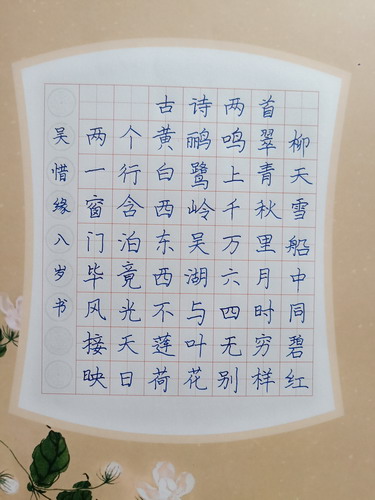 古诗两首
两个黄鹂鸣翠柳
一行白鹭上青天
窗含西岭千秋雪
门泊东吴万里船
毕竟西湖六月中
风光不与四时同
接天莲叶无穷碧
映日荷花别样红
吴惜缘八岁书